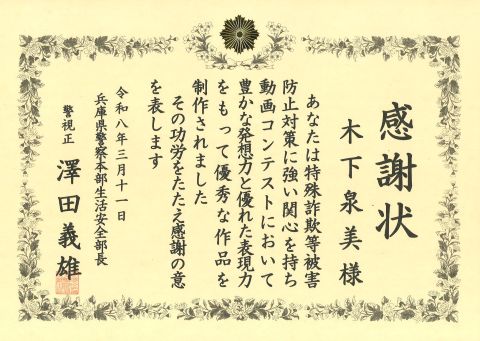 感謝状
木下泉美様
あなたは特殊詐欺等被害
防止対策に強い関心を持ち
動画コンテストにおいて
豊かな発想力と優れた表現力
をもって優秀な作品を
制作されました
その功労をたたえ感謝の意
を表します
令和八年三月十一日
兵庫県警察本部生活安全部長
警視正 澤田義雄